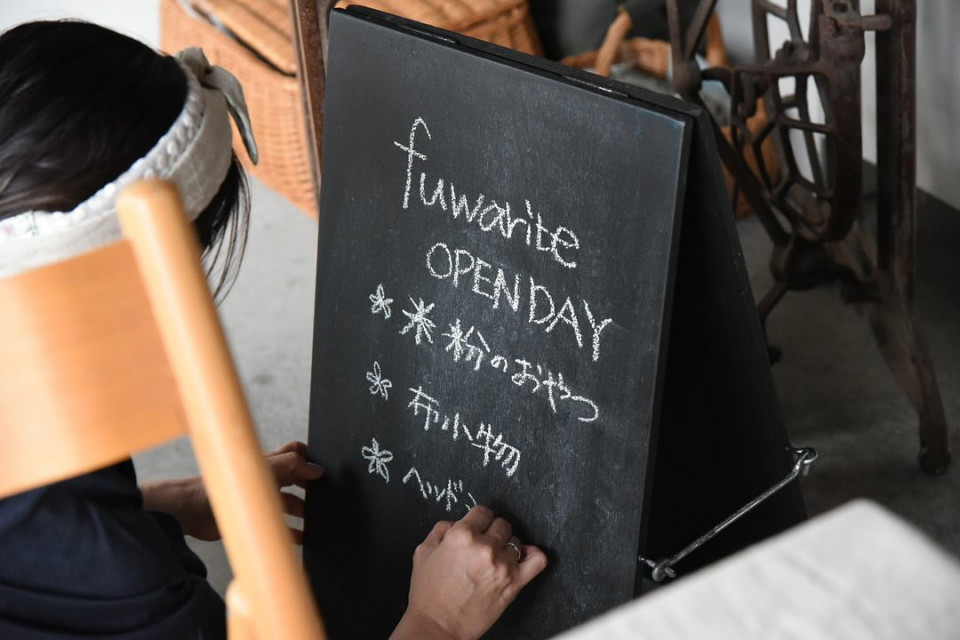 fuwarite
OPEN DAY
米粉のおやつ
布小物
ヘッド